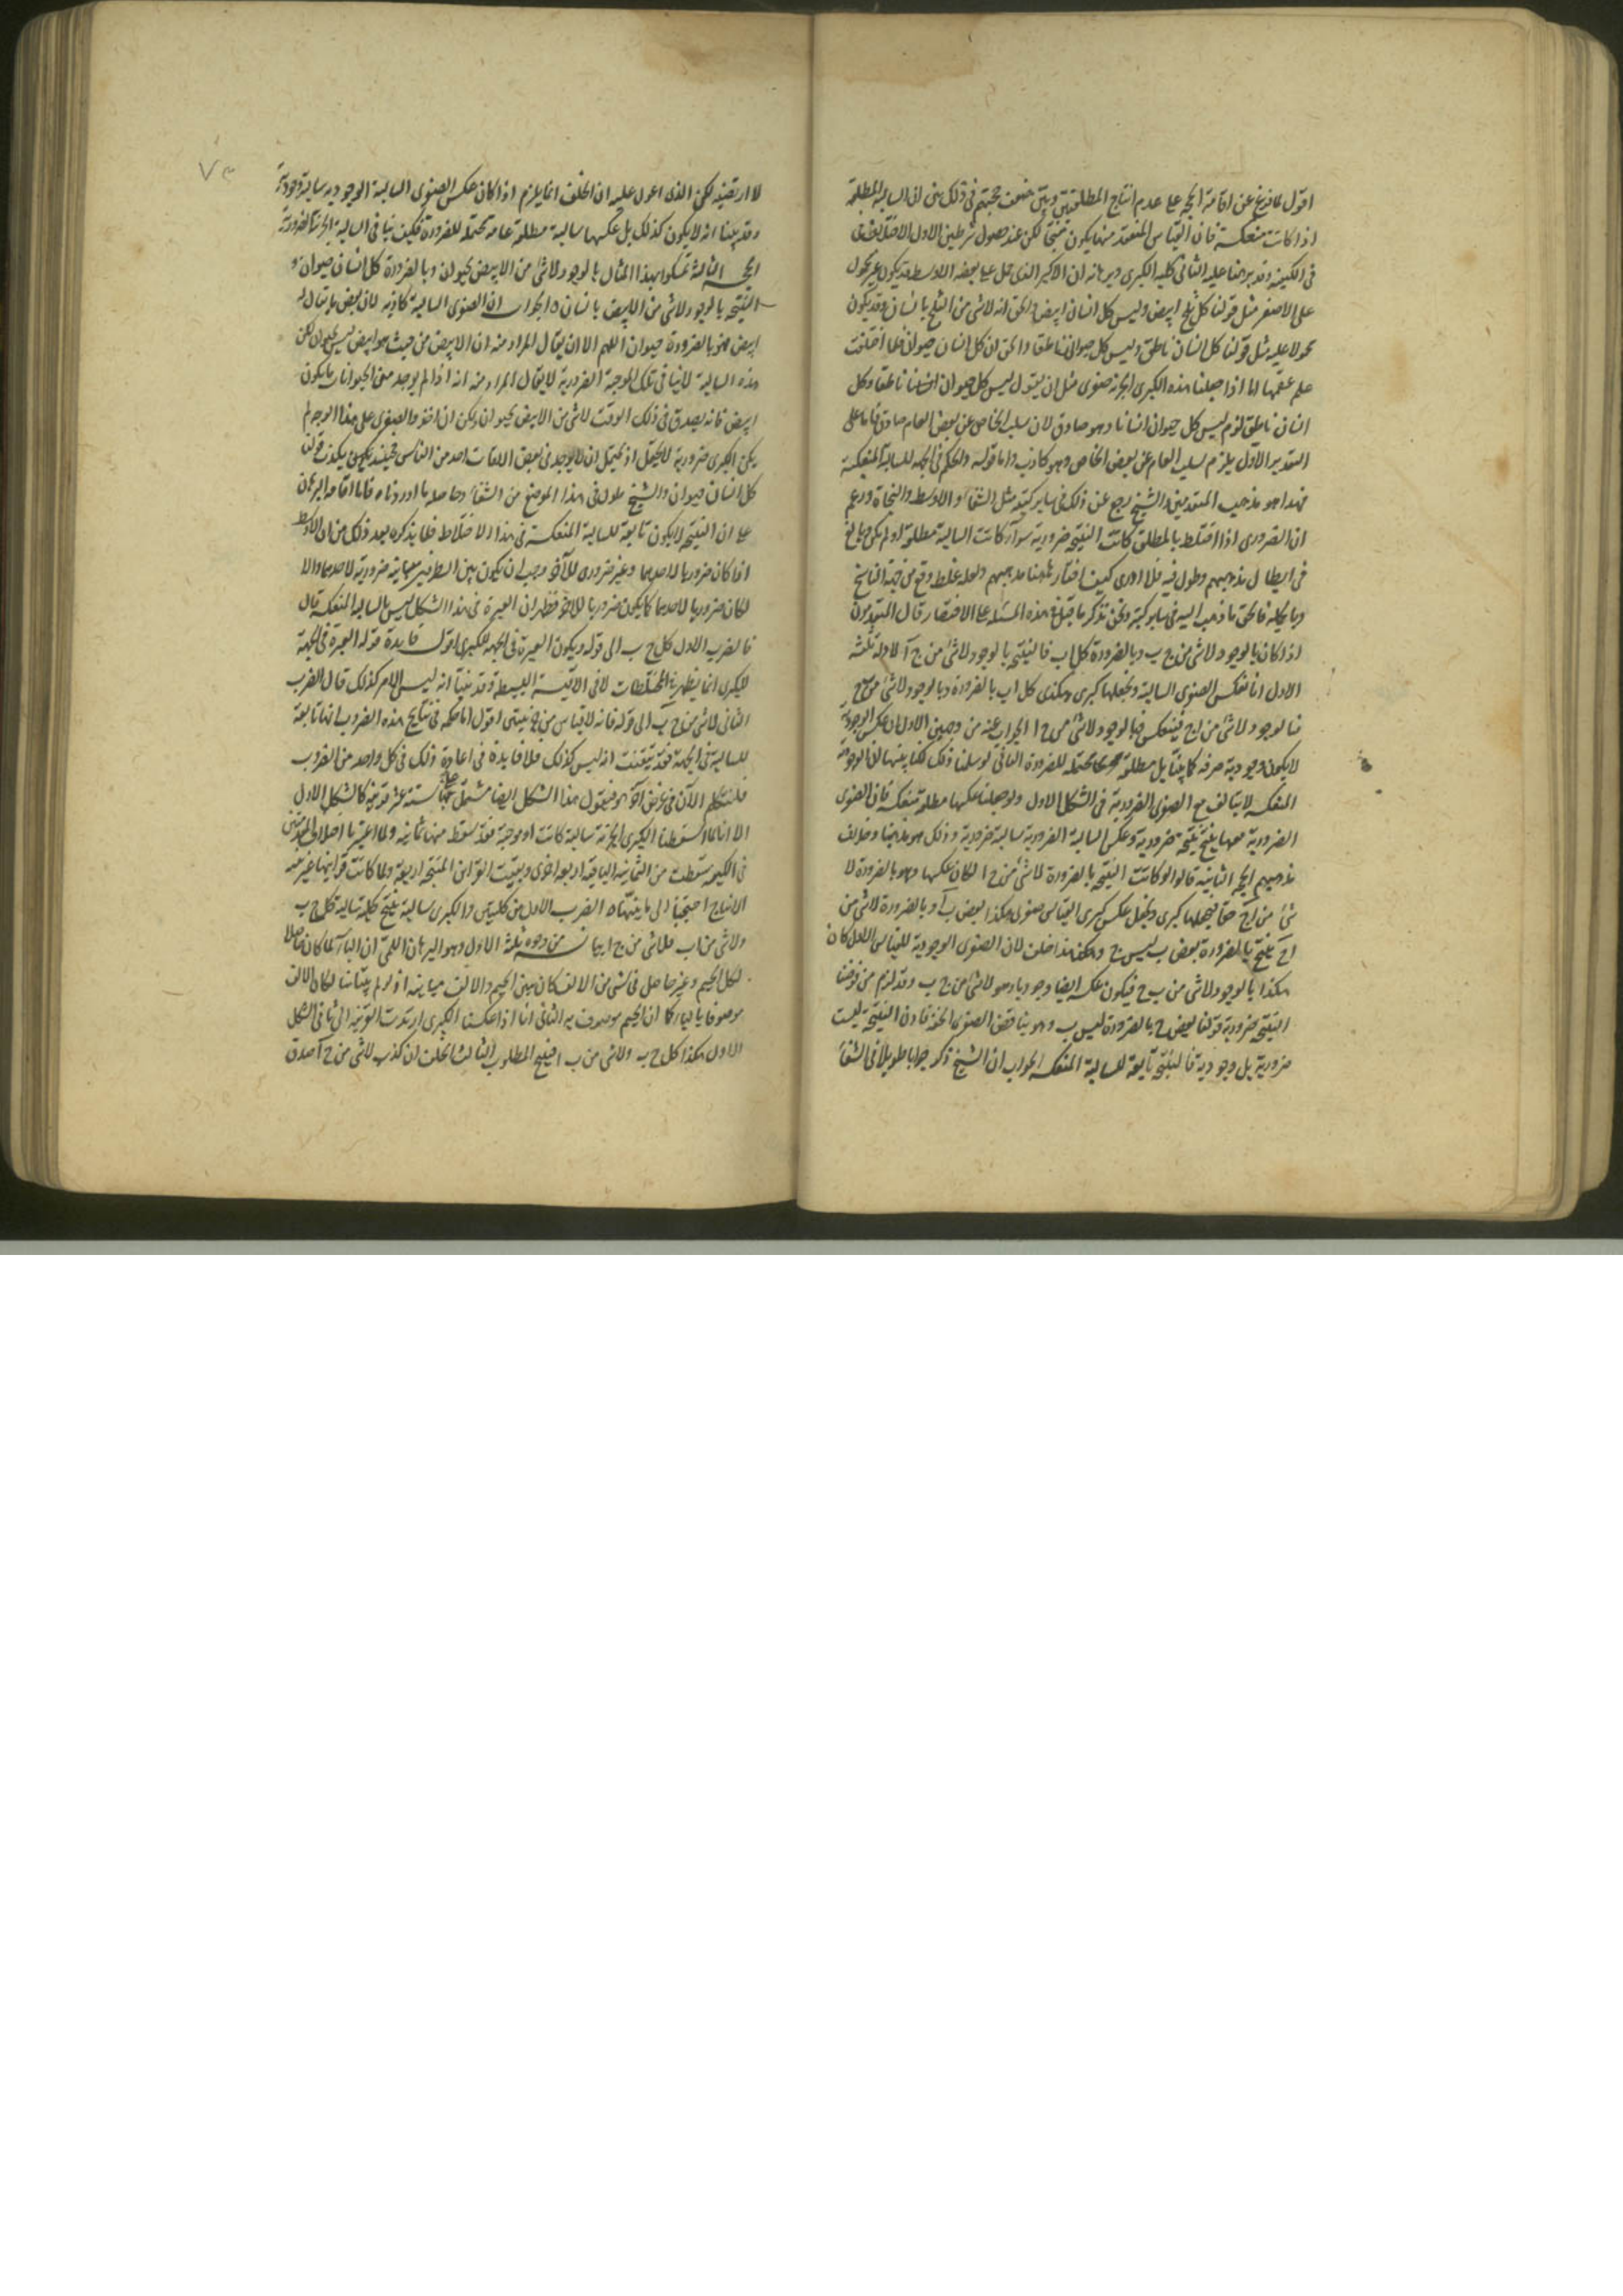 اقول لما فرغ عن اقامة الحجة على عدم انتاج المطلقتين وبين ضعف حجتهم في ذلك بنى ان السالبة المطلقة
اذا كانت منعكسة فان القياس المنعقد منها يكون منتجا لكن عند حصول شرطين الاول الاختلاف
في الكيفية وقد برهنا عليه الثاني كلية الكبرى وبرهانه ان الاكبر الذي حمل على بعض الاوسط قد يكون غير محمول
على الاصغر مثل قولنا كل ثلج ابيض وليس كل انسان ابيض والحق انه لا شئ من الثلج بانسان وقد يكون
محمولا عليه مثل قولنا كل انسان ناطق وليس كل حيوان ناطقا والحق ان كل انسان حيوان فلما اختلفت
علم عقمها اما اذا جعلنا هذه الكبرى الجزئية صغرى مثل ان يقول ليس كل حيوان ناطقا وكل
انسان ناطق لزم ليس كل حيوان انسانا وهو صادق لان سلب الخاص عن بعض العام صادق فاما على
التقدير الاول يلزم سلب العام عن بعض الخاص وهو كاذب واما قوله والحكم في الجهة للسالبة المنعكسة
فهذا هو مذهب المتقدمين والشيخ رجع عن ذلك في ساير كتبه مثل الشفاء والاوسط والنجاة وزعم
ان الضروري اذا اختلط بالمطلق كانت النتيجة ضرورية سواء كانت السالبة مطلقة او لم يكن وبالغ
في ابطال مذهبهم وطول فيه فلا ادري كيف اختار ههنا مذهبهم ولعله غلط وقع من جهة الناسخ
وبالجملة فالحق ما ذهب اليه في ساير كتبه ونحن نذكر ما قيل في هذه المسئلة على الاختصار قال المتقدمون
اذا كان بالوجود لا شئ من ج ب وبالضرورة كل ا ب فالنتيجة بالوجود لا شئ من ج آ لادلة ثلثة
الاول انا نعكس الصغرى السالبة ونجعلها كبرى هكذى كل ا ب بالضرورة وبالوجود لا شئ من ب ج
فبالوجود لا شئ من ا ج فينعكس فبالوجود لا شئ من ج ا الجواب عنه من وجهين الاول ان عكس الوجودية
لا يكون وجودية صرفة كما بينا بل مطلقة محتملة للضرورة الثاني لو سلمنا ذلك لكنا بينا ان الوجودية
المنعكسة لا يتالف مع الصغرى الضرورية في الشكل الاول ولو جعلنا عكسها مطلقة منعكسة فان الصغرى
الضرورية معها ينتج نتيجة ضرورية وعكس السالبة الضرورية سالبة ضرورية وذلك هو مذهبنا وخلاف
مذهبهم الحجة الثانية قالوا لو كانت النتيجة بالضرورة لا شئ من ج ا لكان عكسها وهو بالضرورة لا
شئ من ا ج حقا فيجعلها كبرى ونجعل عكس كبرى القياس صغرى هكذا بعض ب آ وبالضرورة لا شئ من
ا ج ينتج بالضرورة بعض ب ليس ج وهذا خلف لان الصغرى الوجودية للقياس الاول كان
هكذا بالوجود لا شئ من ب ج فيكون عكسه ايضا وجوديا وهو لا شئ من ج ب وقد لزم من فرضنا
النتيجة ضرورية قولنا بعض ج بالضرورة ليس ب وهو يناقض الصغرى الحقة فاذن النتيجة ليست
ضرورية بل وجودية فالنتيجة تابعة للسالبة المنعكسة الجواب ان الشيخ ذكر جوابا طويلا في الشفاء
٧٣
لا ارتضيه لكن الذي اعول عليه ان الخلف انما يلزم اذا كان عكس الصغرى السالبة الوجودية سالبة وجودية
وقد بينا انه لا يكون كذلك بل عكسها سالبة مطلقة عامة محتملة للضرورة فكيف ينافي السالبة الجزئية الضرورية
الحجة الثالثة تمسكوا بهذا المثال بالوجود لا شئ من الابيض بحيوان وبالضرورة كل انسان حيوان و
النتيجة بالوجود لا شئ من الابيض بانسان الجواب ان الصغرى السالبة كاذبة لان بعض ما يقال له
ابيض فهو بالضرورة حيوان اللهم الا ان يقال المراد منه ان الابيض من حيث هو ابيض ليس بحيوان لكن
هذه السالبة لا ينافي تلك الموجبة الضرورية لا يقال المراد منه انه اذا لم يوجد من الحيوانات ما يكون
ابيض فانه يصدق في ذلك الوقت لا شئ من الابيض بحيوان لكن ان اخذوا الصغرى على هذا الوجه لم
يكن الكبرى ضرورية لا يحتمل اذ يحتمل ان لا يوجد في بعض الاوقات احد من الناس فحينئذ يكذب قولنا
كل انسان حيوان والشيخ طول في هذا الموضع من الشفاء وحاصله ما اوردناه فاما اقامة البرهان
على ان النتيجة لا يكون تابعة للسالبة المنعكسة في هذا الاختلاط فلما يذكره بعد ذلك من ان الاوسط
اذا كان ضروريا لاحدهما وغير ضروري للآخر وجب ان يكون بين الطرفين مباينة ضرورية لاحدهما والا
لكان ضروريا لاحدهما كما يكون ضروريا للآخر فظهر ان العبرة في هذا الشكل ليس بالسالبة المنعكسة قال
فالضرب الاول كل ج ب الى قوله ويكون العبرة في الجهة للكبرى اقول فايدة قوله العبرة في الجهة
للكبرى انما يظهر في المختلطات لا في الاقيسة البسيطة وقد بينا انه ليس الامر كذلك قال الضرب
الثاني لا شئ من ج ب الى قوله فانه لا قياس من جزئيتين اقول اما حكمه في نتايج هذه الضروب انها تابعة
للسالبة في الجهة فقد تيقنت انه ليس كذلك فلا فايدة في اعادة ذلك في كل واحد من الضروب
فلنتكلم الآن في غرض آخر فنقول هذا الشكل ايضا مشتمل على ستة عشر قرينة كالشكل الاول
الا انا لما اسقطنا الكبرى الجزئية سالبة كانت او موجبة فقد سقط منها ثمانية ولما اعتبرنا اختلاف المقدمتين
في الكيف سقطت من الثمانية الباقية اربعة اخرى وبقيت القرائن المنتجة اربعة ولما كانت قرائنها غير بينة
الانتاج احتجنا الى بيانها الضرب الاول من كليتين والكبرى سالبة ينتج كلية سالبة كل ج ب
ولا شئ من ا ب فلا شئ من ج ا بيانه من وجوه ثلثة الاول وهو البرهان اللمي ان الباء لما كان حاصلا
لكل الجيم وغير حاصل في شئ من الالف كان بين الجيم والالف مباينة اذ لو لم يتباينا لكان الالف
موصوفا بالباء كما ان الجيم موصوف به الثاني انا اذا عكسنا الكبرى ارتدت القرينة الى ثاني الشكل
الاول هكذا كل ج ب ولا شئ من ب ا فينتج المطلوب الثالث الخلف ان كذب لا شئ من ج آ صدق